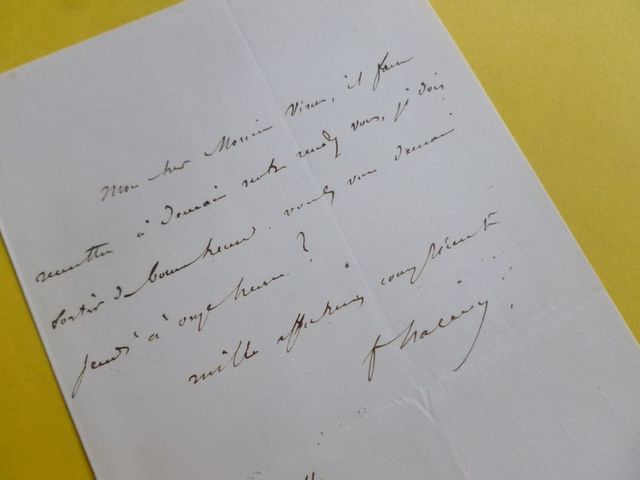 Mon cher Monsieur Viser, il faut
remettre à demain notre rendez vous, je dois
sortir de bonne heure. voulez vous demain
jeudi à onze heures ?
mille affectueux compliments
F Halévy